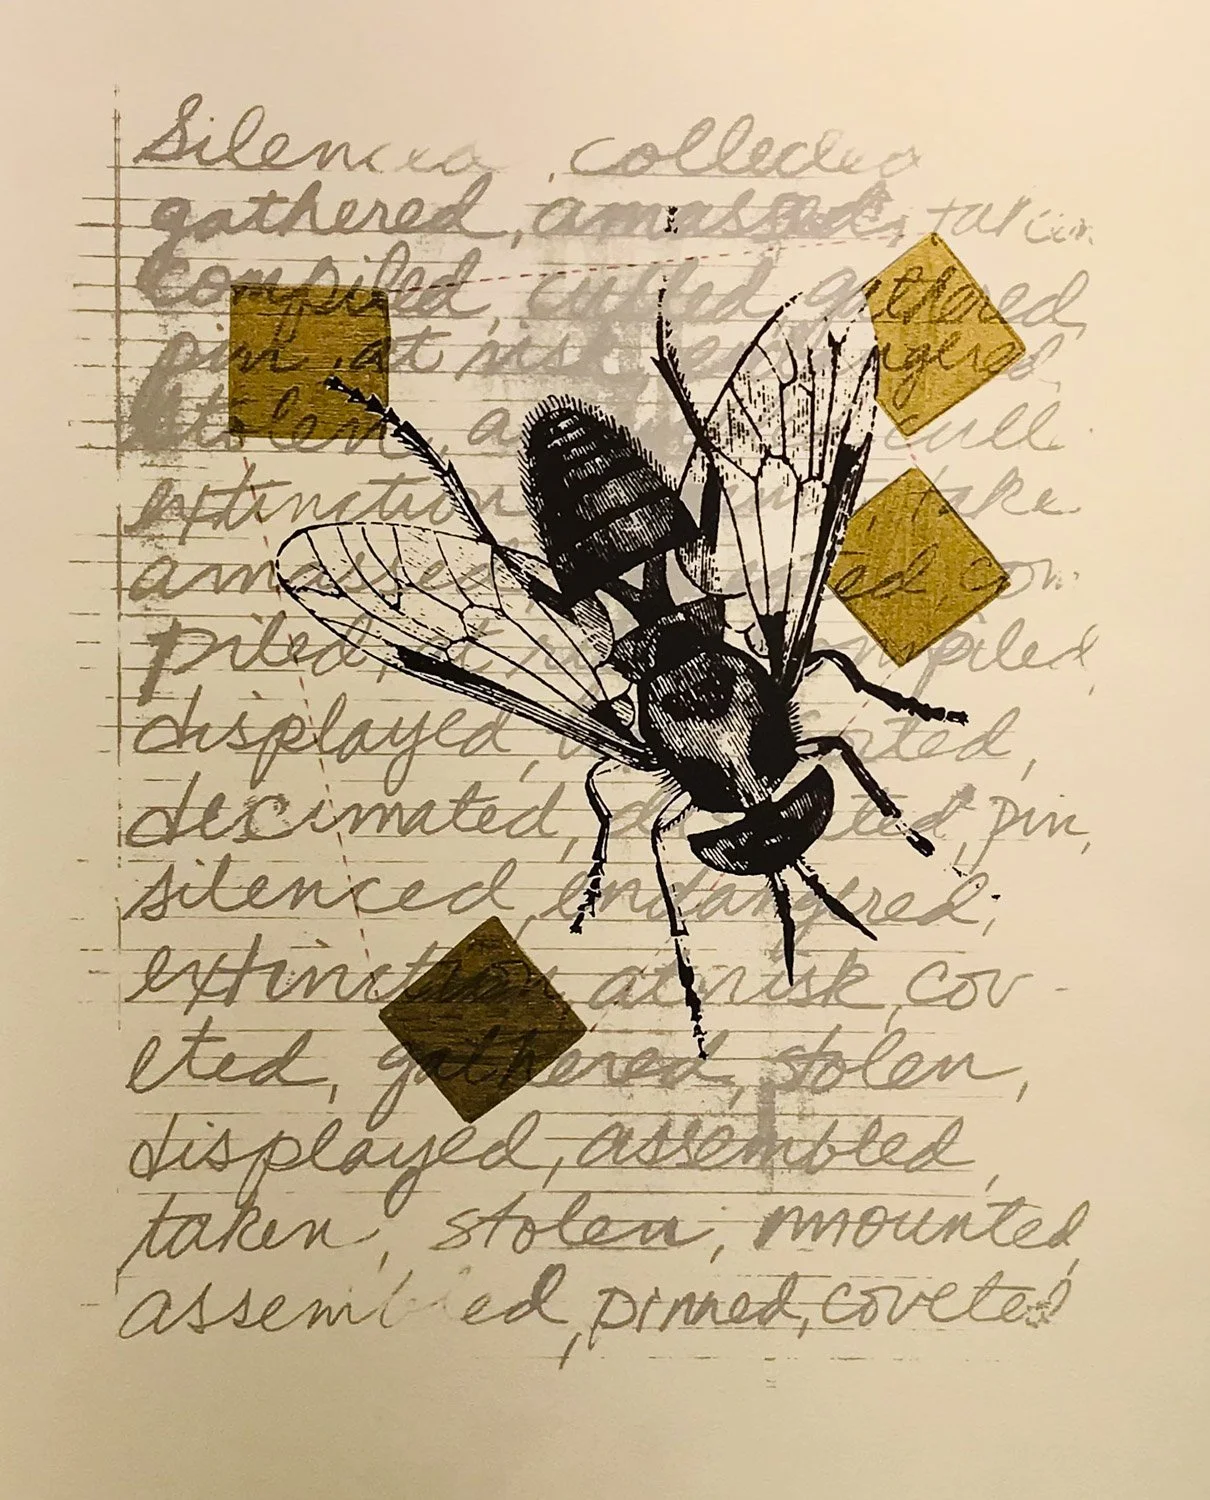 Silenced, collected
gathered, amassed, taken
compiled, culled, gathered,
pin, at risk, endangered,
stolen, cull
extinction, take
amassed, com-
piled, at risk, compiled,
displayed,
decimated, pin,
silenced, endangered,
extinction, at risk, cov-
eted, gathered, stolen,
displayed, assembled,
taken, stolen, mounted,
assembled, pinned, coveted